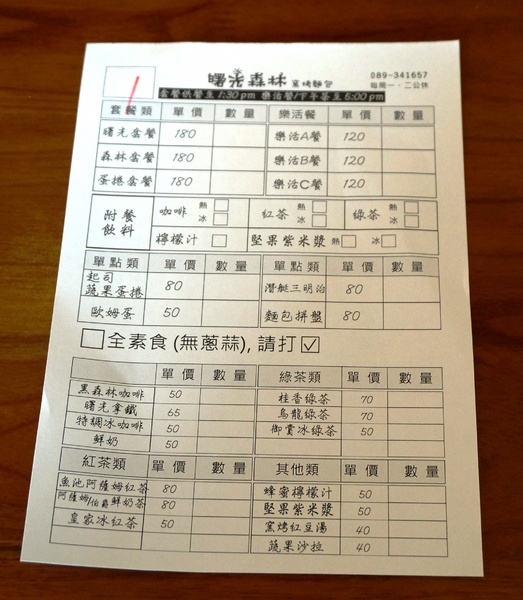 曙光森林 窯烤麵包
089-341657
每周一、二公休
套餐供餐至1:30pm 樂活餐/下午茶至5:00pm
套餐類 單價 數量 樂活餐 單價 數量
曙光套餐 180 樂活A餐 120
森林套餐 180 樂活B餐 120
蛋捲套餐 180 樂活C餐 120
附餐飲料 咖啡 熱 冰 紅茶 熱 冰 綠茶 熱 冰
檸檬汁 堅果紫米漿 熱 冰
單點類 單價 數量 單點類 單價 數量
起司蔬果蛋捲 80 潛艇三明治 80
歐姆蛋 50 麵包拼盤 80
全素食(無蔥蒜), 請打☑
單價 數量 綠茶類 單價 數量
黑森林咖啡 50 桂香綠茶 70
曙光拿鐵 65 烏龍綠茶 70
特調冰咖啡 50 御賞冰綠茶 50
鮮奶 50
紅茶類 單價 數量 其他類 單價 數量
魚池阿薩姆紅茶 80 蜂蜜檸檬汁 50
阿薩姆/伯爵鮮奶茶 80 堅果紫米漿 50
皇家冰紅茶 50 窯烤紅豆湯 40
蔬果沙拉 40